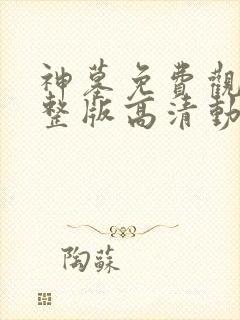 神墓免費觀
整版高清動
陶蘇